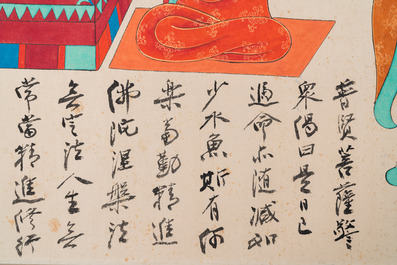 普賢菩薩警
眾偈曰是日已
過命亦随减如
少水魚斯有何
樂當勤精進
佛既涅槃法
無定法人生無
常當精進修行